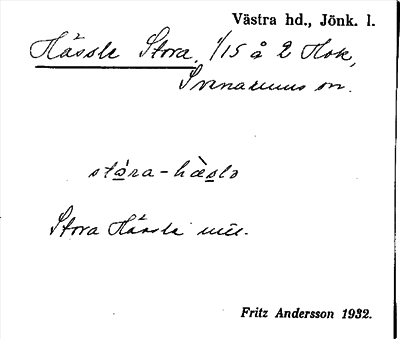 Västra hd., Jönk. l.
Hässle Stora, 1/15 å 2 Hok,
Svenarums sn.
stó̲ra-hàs̲lə
Stora Hässle
Fritz Andersson 1932.